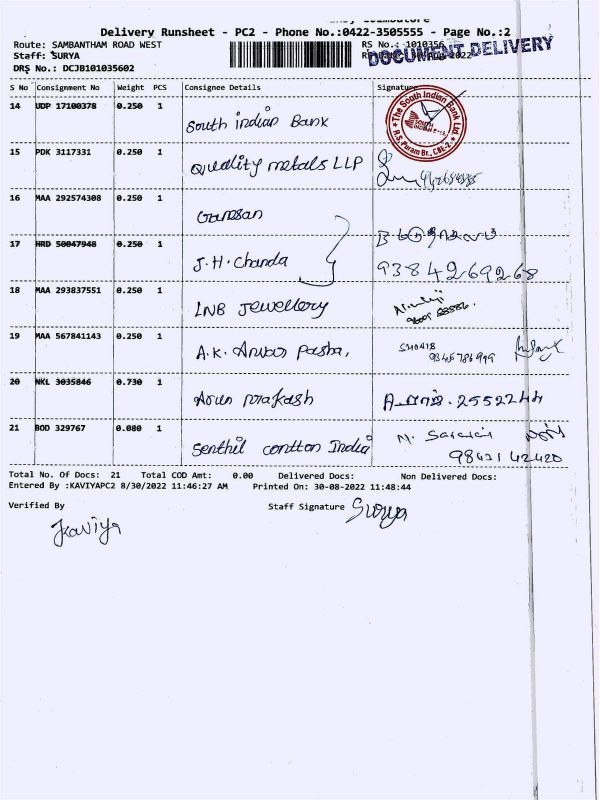 Delivery Runsheet - PC2 - Phone No.:0422-3505555 - Page No.:2
Route: SAMBANTHAM ROAD WEST
RS No.: 1010356
Staff: SURYA
DOCUMENT DELIVERY
DRS No.: DCJB101035602
S No Consignment No Weight PCS Consignee Details Signature
14 UDP 17100378 0.250 1 South indian Bank
The South Indian Bank Ltd.
R.S. Puram Br., CBE-2
15 PDK 3117331 0.250 1 Quality metals LLP
16 MAA 292574308 0.250 1 Ganesan
17 HRD 50047948 0.250 1 J.H. Chanda 9384269268
18 MAA 293837551 0.250 1 LNB Jewellery
19 MAA 567841143 0.250 1 A.K. Anwar Pasha,
20 NKL 3035846 0.730 1 Arun prakash 2552244
21 BOD 329767 0.080 1 Senthil contton India
98421 42420
Total No. Of Docs: 21 Total COD Amt: 0.00 Delivered Docs: Non Delivered Docs:
Entered By :KAVIYAPC2 8/30/2022 11:46:27 AM Printed On: 30-08-2022 11:48:44
Verified By Staff Signature Surya
Kaviya